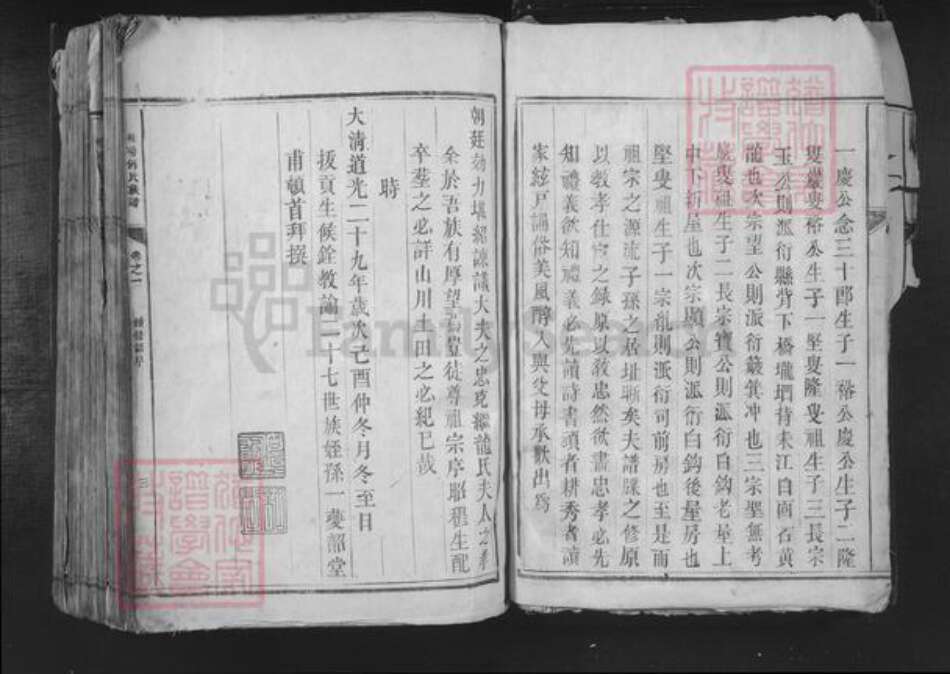 一慶公念三十郎生子一裕公慶公生子二隆
叟巖叟裕公生子一堅叟隆叟祖生子三長宗
玉公則派衍縣背下橋壠坰待未江白面石黃
龍也次宗望公則派衍簸箕冲也三宗聖無考
巖叟祖生子二長宗寶公則派衍白鈎老屋上
中下新屋也次宗顯公則派衍白鈎後屋房也
堅叟祖生子一宗亂則派衍司前房也至是而
祖宗之源流子孫之居址晰矣夫譜牒之修原
以教孝仕宦之錄原以敎忠然欲盡忠孝必先
知禮義欲知禮義必先讀詩書頑者耕秀者讀
家絃戶誦俗美風醇入與父母承歡出爲
朝廷効力堪紹諫議大夫之忠克繼龍氏夫人之孝
余於吾族有厚望焉豈徒尊祖宗序昭穆生配
卒塟之必詳山川土田之必紀已哉
時
大清道光二十九年歲次己酉仲冬月冬至日
拔貢生候銓教諭二十七世族姪孫一夔韶堂
甫頓首拜撰
氏族譜
卷之一
三
FamilySearch